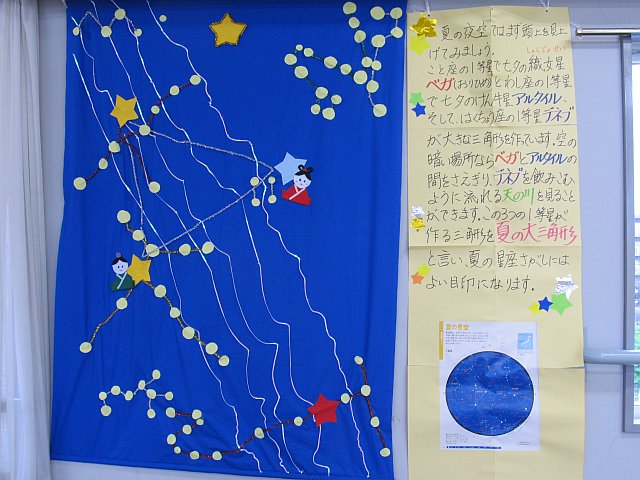 夏の夜空ではまず頭上を見上
げてみましょう。
しょくじょせい
こと座の1等星で七夕の織女星
ベガ(おりひめ)とわし座の1等星
で七夕のけん牛星アルタイル、
そして、はくちょう座の1等星デネブ
が大きな三角形を作っています。空の
暗い場所ならベガとアルタイルの
間をさえぎり、デネブを飲みこむ
ように流れる天の川を見ること
ができます。この3つの1等星が
作る三角形を夏の大三角形
と言い夏の星座さがしには
よい目印になります。
夏の星空